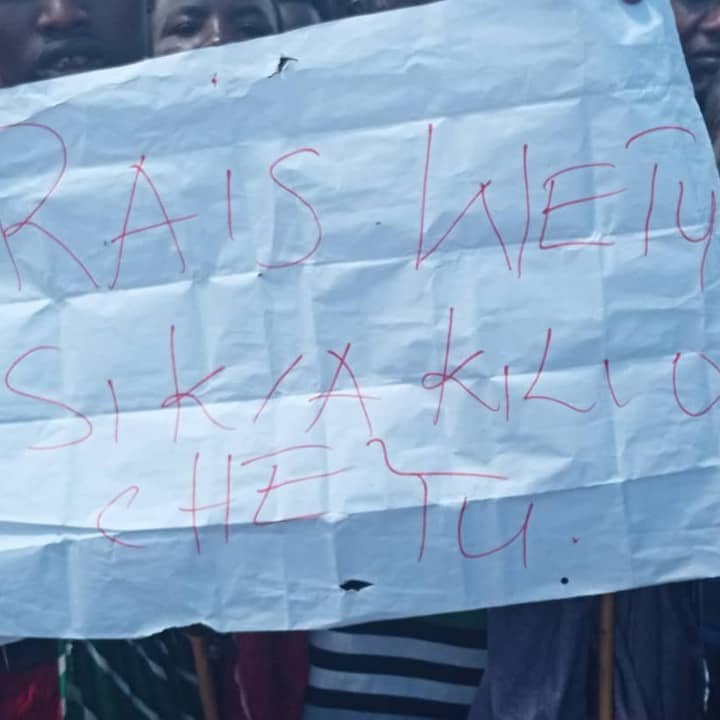 RAIS WETU
SIKIA KILIO
CHETU.